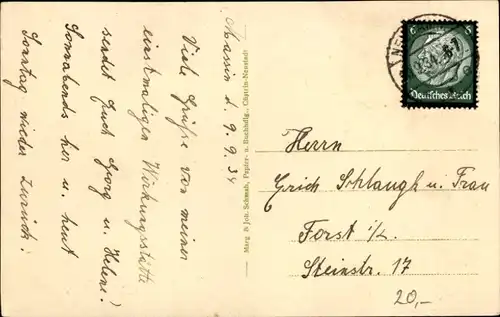 Massin d. 9.9.34
Viele Grüße von meiner
einstmaligen Wirkungsstätte
sendet Euch Georg u. Helene!
Sonnabends her u. heut
Sonntag wieder zurück!
Marg & Joh. Schwab, Papier- u. Buchhdlg., Cüstrin-Neustadt
6
Deutsches Reich
Herrn
Erich Schlaugh u. Frau
Forst i/L.
Steinstr. 17
20,-